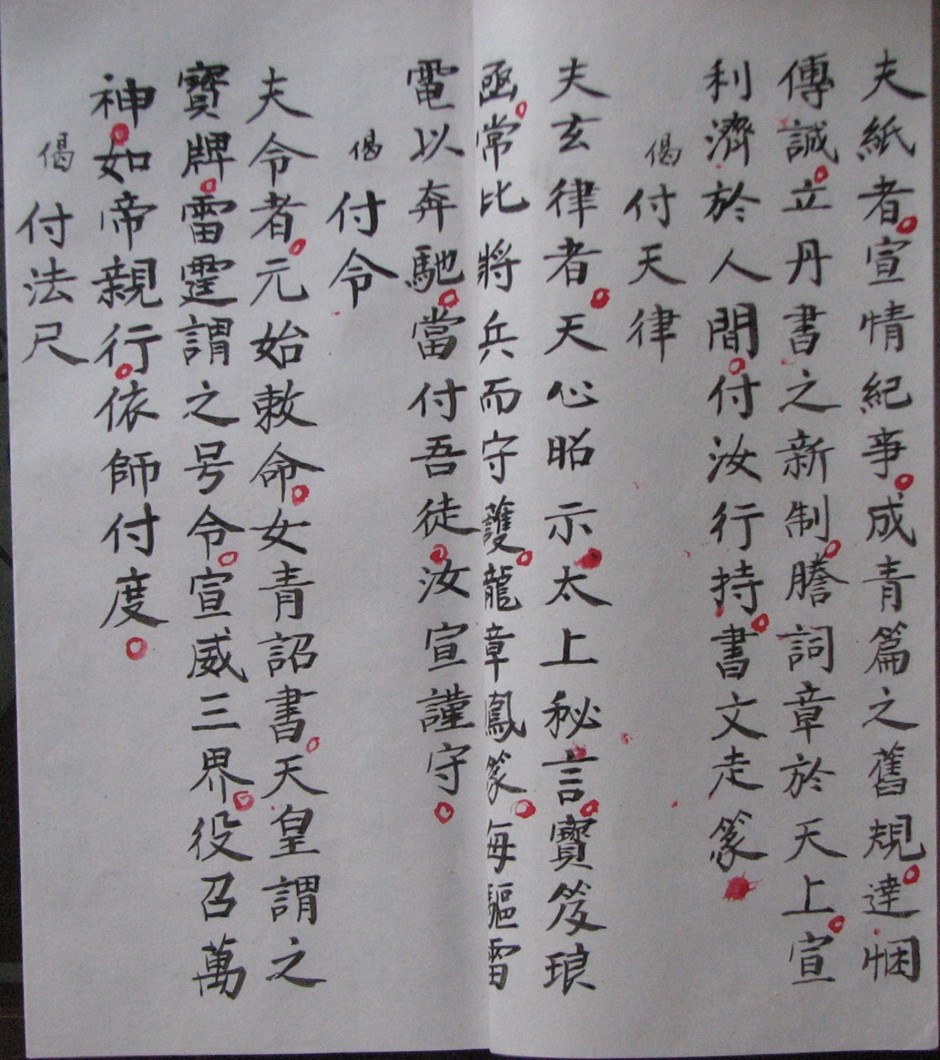 夫紙者。宣情紀事。成青篇之舊規。達悃
傳誠。立丹書之新制。謄詞章於天上。宣
利濟於人間。付汝行持。書文走篆。
偈 付天律
夫玄律者。天心昭示。太上秘言。寶笈琅
函。常比將兵而守護。龍章鳳篆。每驅雷
電以奔馳。當付吾徒。汝宣謹守。
偈 付令
夫令者。元始敕命。女青詔書。天皇謂之
寶牌。雷霆謂之号令。宣威三界。役召萬
神。如帝親行。依師付度。
偈 付法尺